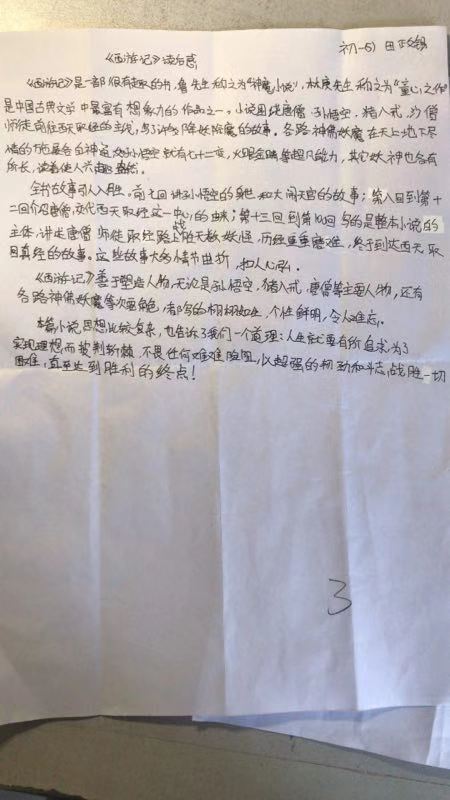 《西游记》读后感
初一(5) 田政锡
《西游记》是一部很有趣的书,鲁先生称之为"神魔小说",林庚先生称之为"童心之作"
是中国古典文学中最富有想象力的作品之一。小说围绕唐僧、孙悟空、猪八戒、沙僧
师徒前往西天取经的主线,写了许多降妖除魔的故事。各路神佛妖魔在天上地下尽
情的施展各自神通,如孙悟空就有七十二变,火眼金睛等超凡能力,其它妖神也各有
所长,读着使人兴趣盎然。
全书故事引人入胜。前七回讲孙悟空的身世和大闹天宫的故事;第八回到第十
二回介绍唐僧,交代西天取经这一中心的由来;第十三回到第100回写的是整本小说的
主体,讲述唐僧师徒取经路上战无数妖怪,历经重重磨难,终于到达西天取
回真经的故事。这些故事大的情节曲折,扣人心弦。
《西游记》善于塑造人物,无论是孙悟空、猪八戒、唐僧等主要人物,还有
各路神佛妖魔等次要角色,都写的栩栩如生,个性鲜明,令人难忘。
本篇小说思想比较复杂,也告诉了我们一个道理:人生就要有所追求,为了
实现理想而披荆斩棘,不畏任何艰难险阻,以超强的韧劲和斗志,战胜一切
困难,直至达到胜利的终点!
3